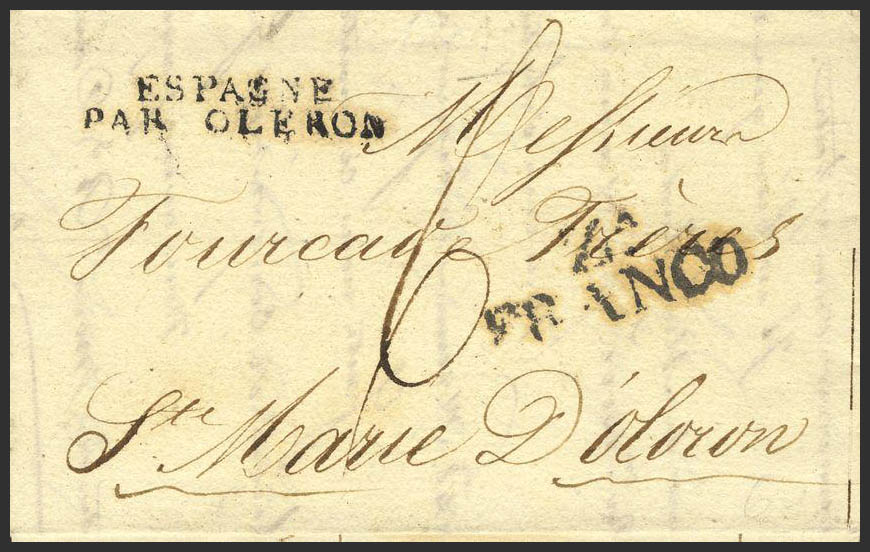 ESPAGNE
PAR OLERON
Messieurs
Fourcade Frères
FRANCO
Ste Marie D'óloron
6